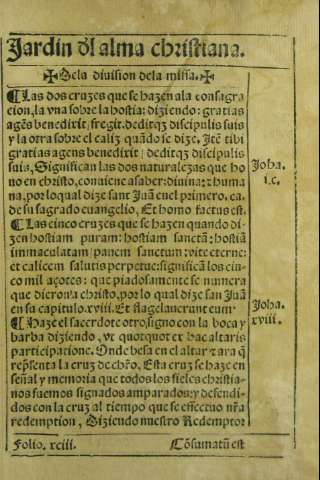 Jardin dl alma christiana.
✠ De la diuision dela missa. ✠
¶ Las dos cruzes que se hazen ala consagra
cion, la vna sobre la hostia: diziendo: gratias
agẽs benedixit / fregit. deditqȝ discipulis suis
y la otra sobre el caliz quãdo se dize. Itẽ tibi
gratias agens benedixit / deditqȝ discipulis
suis, Significan las dos naturalezas que ho
uo en christo, conuiene a saber: diuina: z huma
na, por lo qual dize sant Juã en el primero. ca.
de su sagrado euangelio, Et homo factus est.
¶ Las cinco cruzes que se hazen quando di-
zen hostiam puram: hostiam sanctã: hostiã
immaculatam / panem sanctum: vite eterne:
et calicem salutis perpetue: significã los cin-
co mil açotes: que piadosamente se numera
que dieron a christo, por lo qual dize san Juã
en su capitulo. xviii. Et flagelauerunt eum.
¶ Haze el sacerdote otro, signo con la boca y
barba diziendo, vt quotquot ex hac altaris
participatione. Onde besa en el altar z ara q̃
reps̃enta la cruz de chr̃o. Esta cruz se haze en
señal y memoria que todos los fieles christia-
nos fuemos signados amparados: y defendi-
dos con la cruz al tiempo que se effectuo nr̃a
redemption, Diziendo nuestro Redemptor
Joha.
i. c.
Joha.
xviii.
Folio. xciii.
Cõsumatũ est